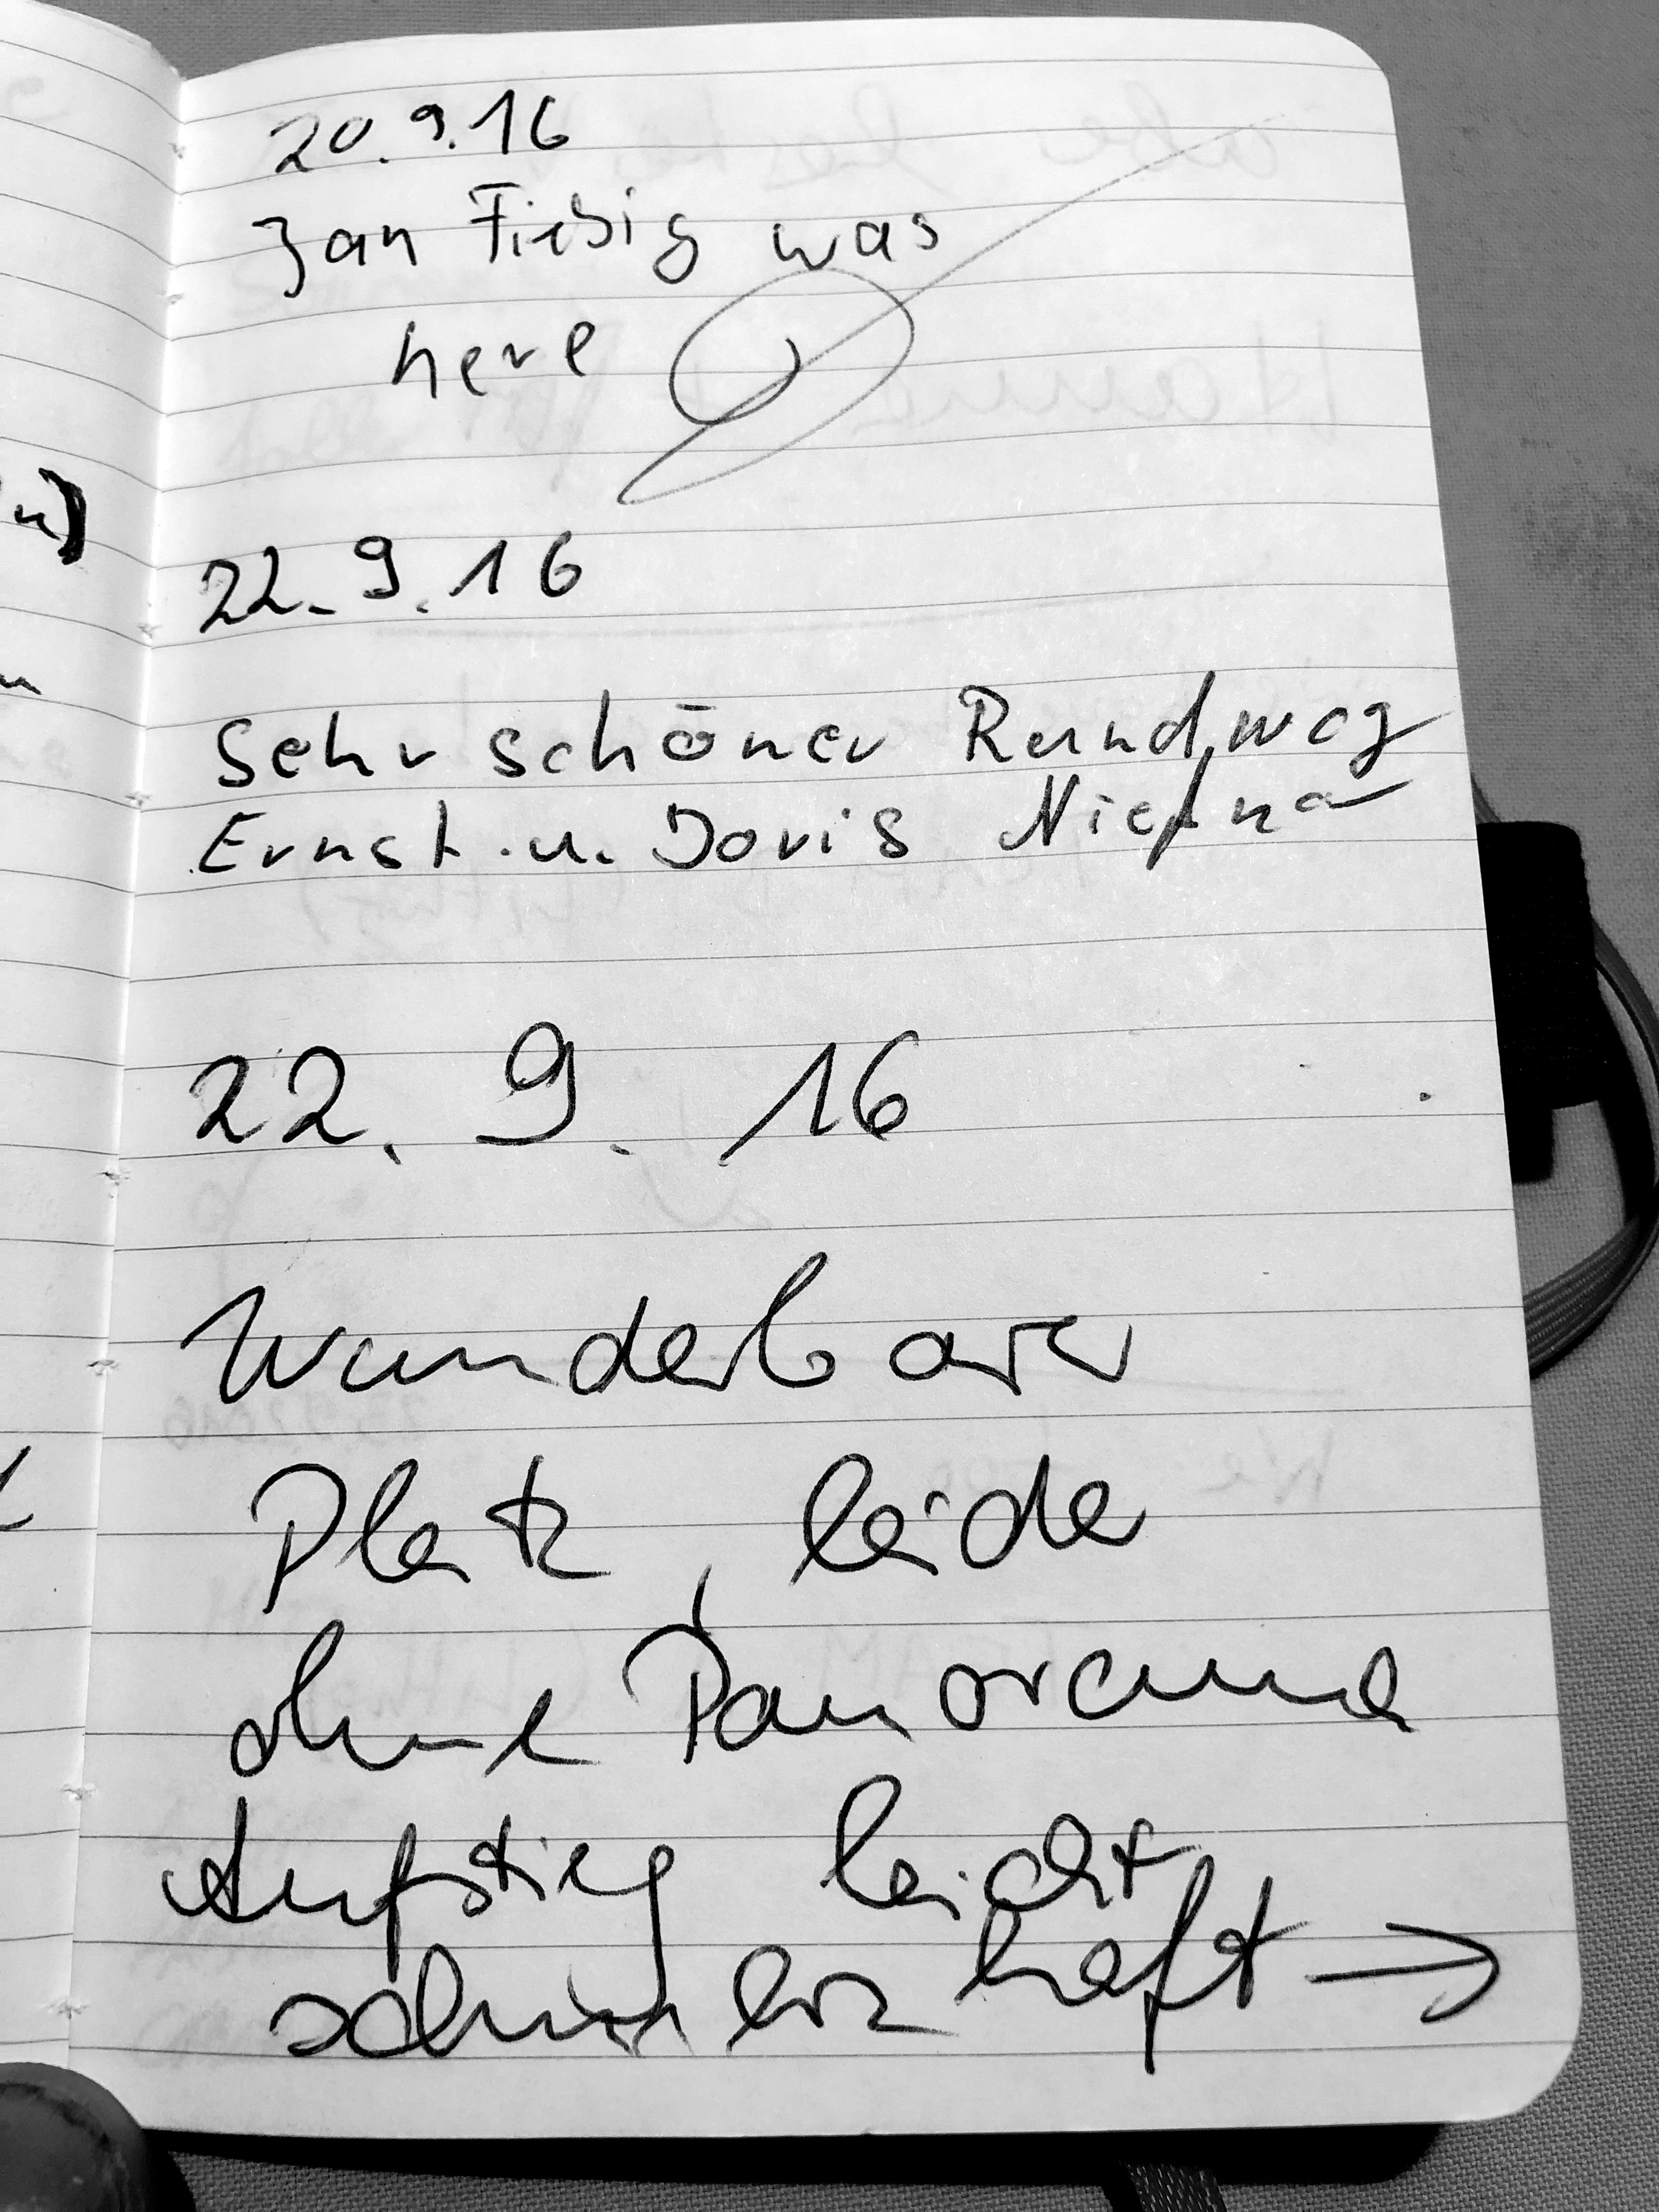 20.9.16
Jan Fiebig was
here
22.9.16
Sehr schöner Rundweg
Ernst u. Doris
22. 9. 16
Wunderbarer
Platz, leider
ohne Panorama
Aufstieg leicht
schmerzhaft →